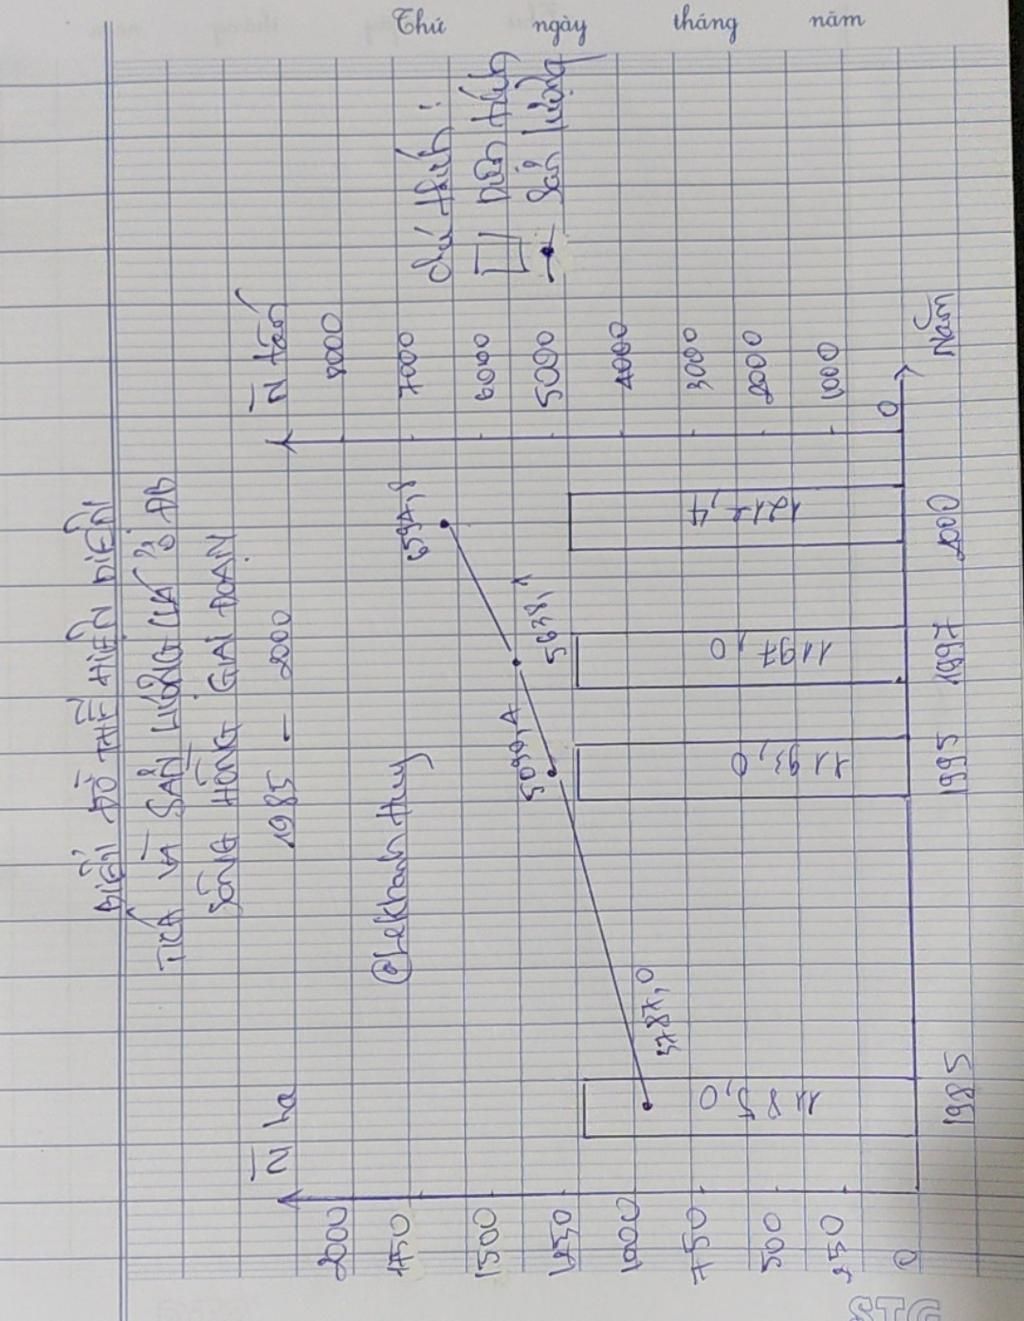 Thứ ngày tháng năm
BIỂU ĐỒ THỂ HIỆN DIỆN
TÍCH VÀ SẢN LƯỢNG LÚA Ở ĐB
SÔNG HỒNG GIAI ĐOẠN
1985 – 2000
N̄ ha
N̄ tấn
2000
1750
1500
1250
1000
750
500
250
0
8000
7000
6000
5000
4000
3000
2000
1000
0
@Lekhanh Huy
3787,0
5090,4
5638,1
6594,8
1185,0
1193,0
1197,0
1212,4
1985
1995
1997
2000
Năm
Chú thích:
Diện tích
Sản lượng
STG